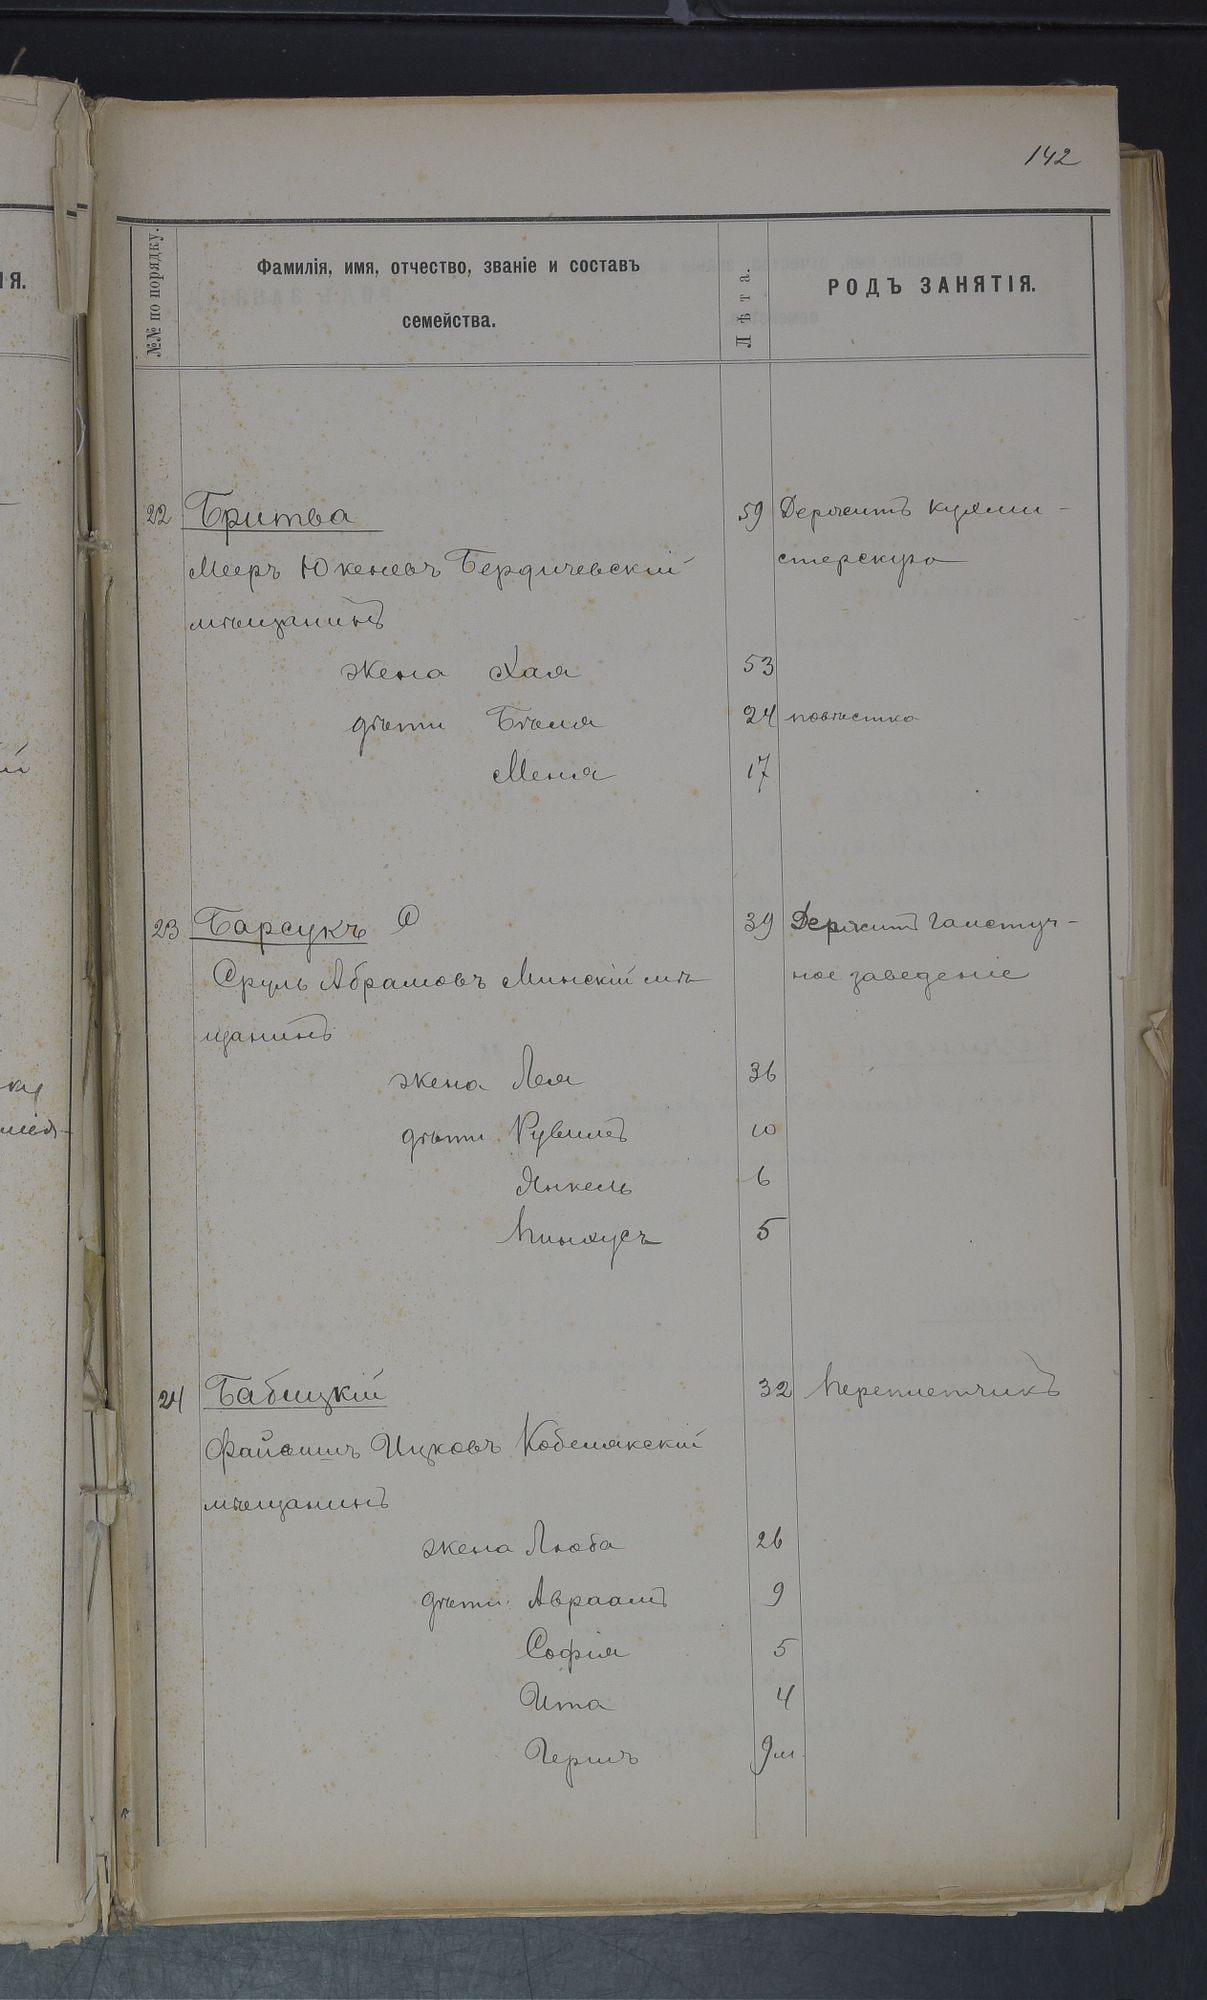 142
№№ по порядку.
Фамилія, имя, отчество, званіе и составъ
семейства.
Лѣта.
РОДЪ ЗАНЯТІЯ.
ІЯ.
22 Бритва 59 Держитъ кухми-
Мееръ Юкелевъ Бердичевскій стерскую
мѣщанинъ
жена Хая 53
дѣти Бѣля 24
Меня 17
23 Барсукъ 39 Держитъ галстуч-
Сруль Абрамовъ Минскій мѣ ное заведеніе
щанинъ
жена Лея 36
дѣти Рувимъ 10
Янкель 6
Пинхусъ 5
24 Бабицкій 32 Переплетчикъ
Файвишъ Ицковъ Кобелякскій
мѣщанинъ
жена Люба 26
дѣти: Авраамъ 9
Софія 5
Ита 4
Гершъ 9 м.